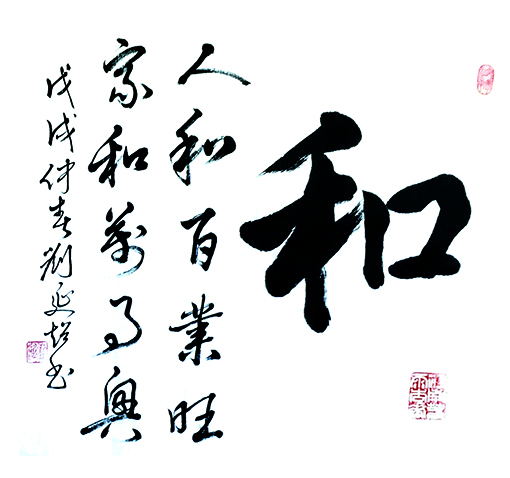 和
人和百業旺
家和萬事興
戊戌仲春劉延超书